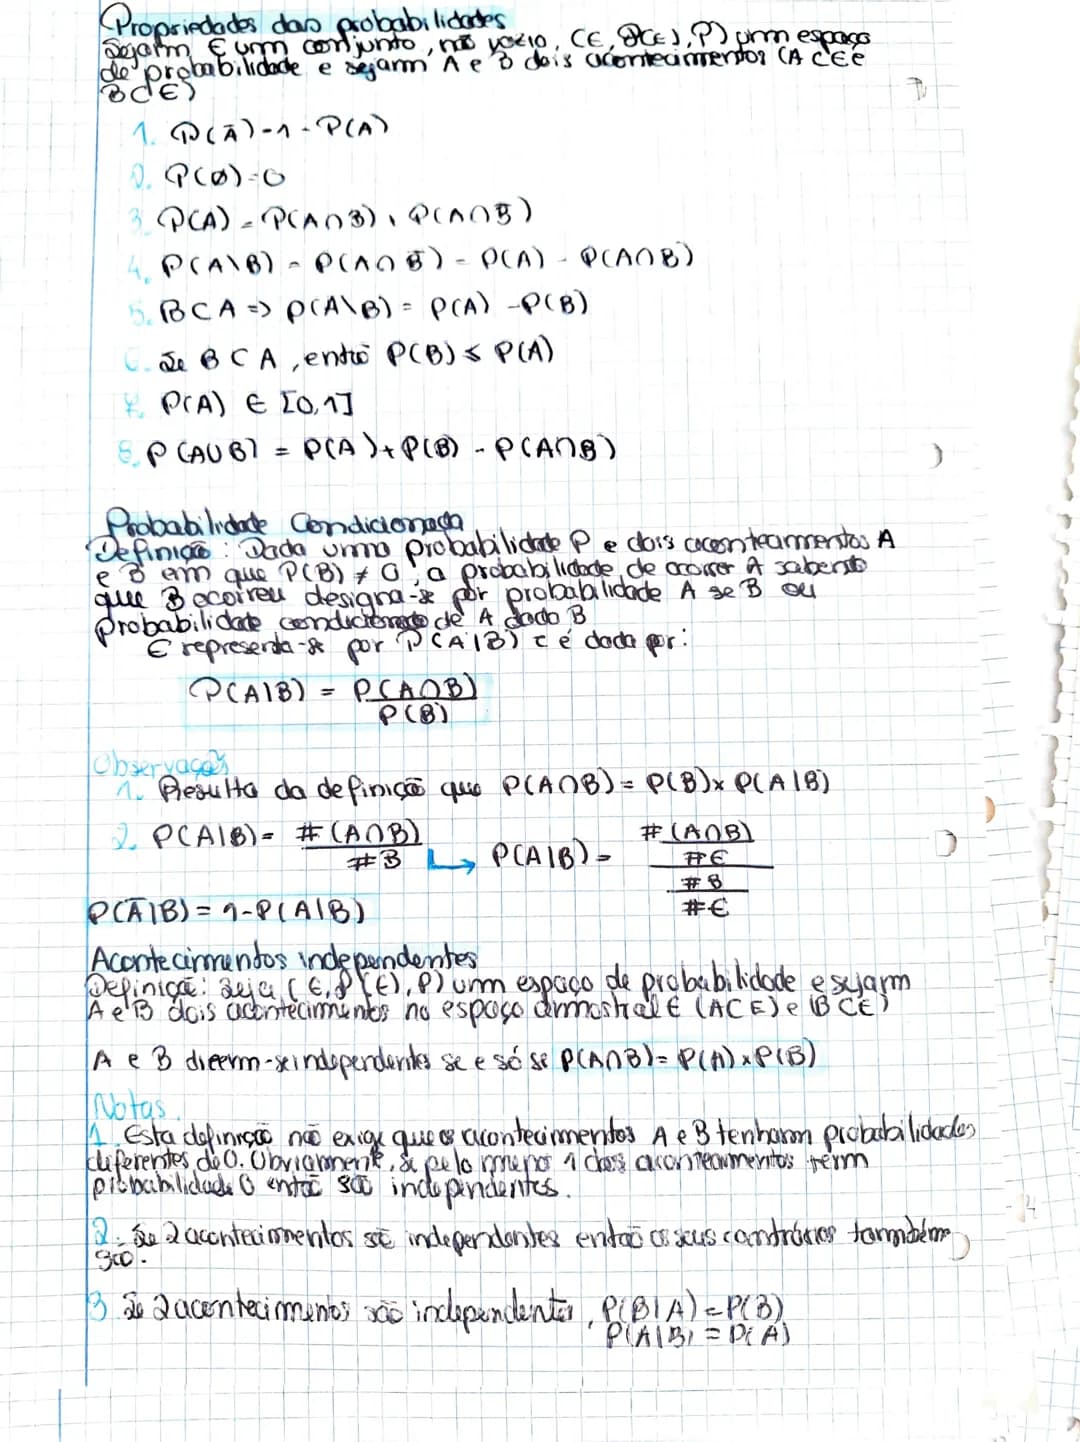 Propriedades das probabilidades
Sejam E um conjunto, não vazio, (E, P(E), P) um espaço
de probabilidade e sejam A e B dois acontecimentos (A ⊂ E e
B ⊂ E)
1. P(Ā) = 1 - P(A)
2. P(∅) = 0
3. P(A) = P(A∩B) + P(A∩B̄)
4. P(A\B) = P(A∩B̄) = P(A) - P(A∩B)
5. B ⊂ A => P(A\B) = P(A) - P(B)
6. Se B ⊂ A, então P(B) ≤ P(A)
7. P(A) ∈ [0,1]
8. P(A∪B) = P(A) + P(B) - P(A∩B)
Probabilidade Condicionada
Definição: Dada uma probabilidade P e dois acontecimentos A
e B em que P(B) ≠ 0, a probabilidade de ocorrer A sabendo
que B ocorreu designa-se por probabilidade A se B ou
probabilidade condicionada de A dado B
E representa-se por P(A|B) e é dada por:
P(A|B) = P(A∩B)
P(B)
Observações
1. Resulta da definição que P(A∩B) = P(B) x P(A|B)
2. P(A|B) = #(A∩B) / #B ↳ P(A|B) = #(A∩B) / #E / #B / #E
P(Ā|B) = 1 - P(A|B)
Acontecimentos independentes
Definição: Seja (E, P(E), P) um espaço de probabilidade e sejam
A e B dois acontecimentos no espaço amostral E (A ⊂ E) e (B ⊂ E)
A e B dizem-se independentes se e só se P(A∩B) = P(A) x P(B)
Notas
1. Esta definição não exige que os acontecimentos A e B tenham probabilidades
diferentes de 0. Obviamente, se pelo menos 1 dos acontecimentos tem
probabilidade 0 então são independentes.
2. Se 2 acontecimentos são independentes então os seus contrários também
são.
3. Se 2 acontecimentos são independentes, P(B|A) = P(B)
P(A|B) = P(A)